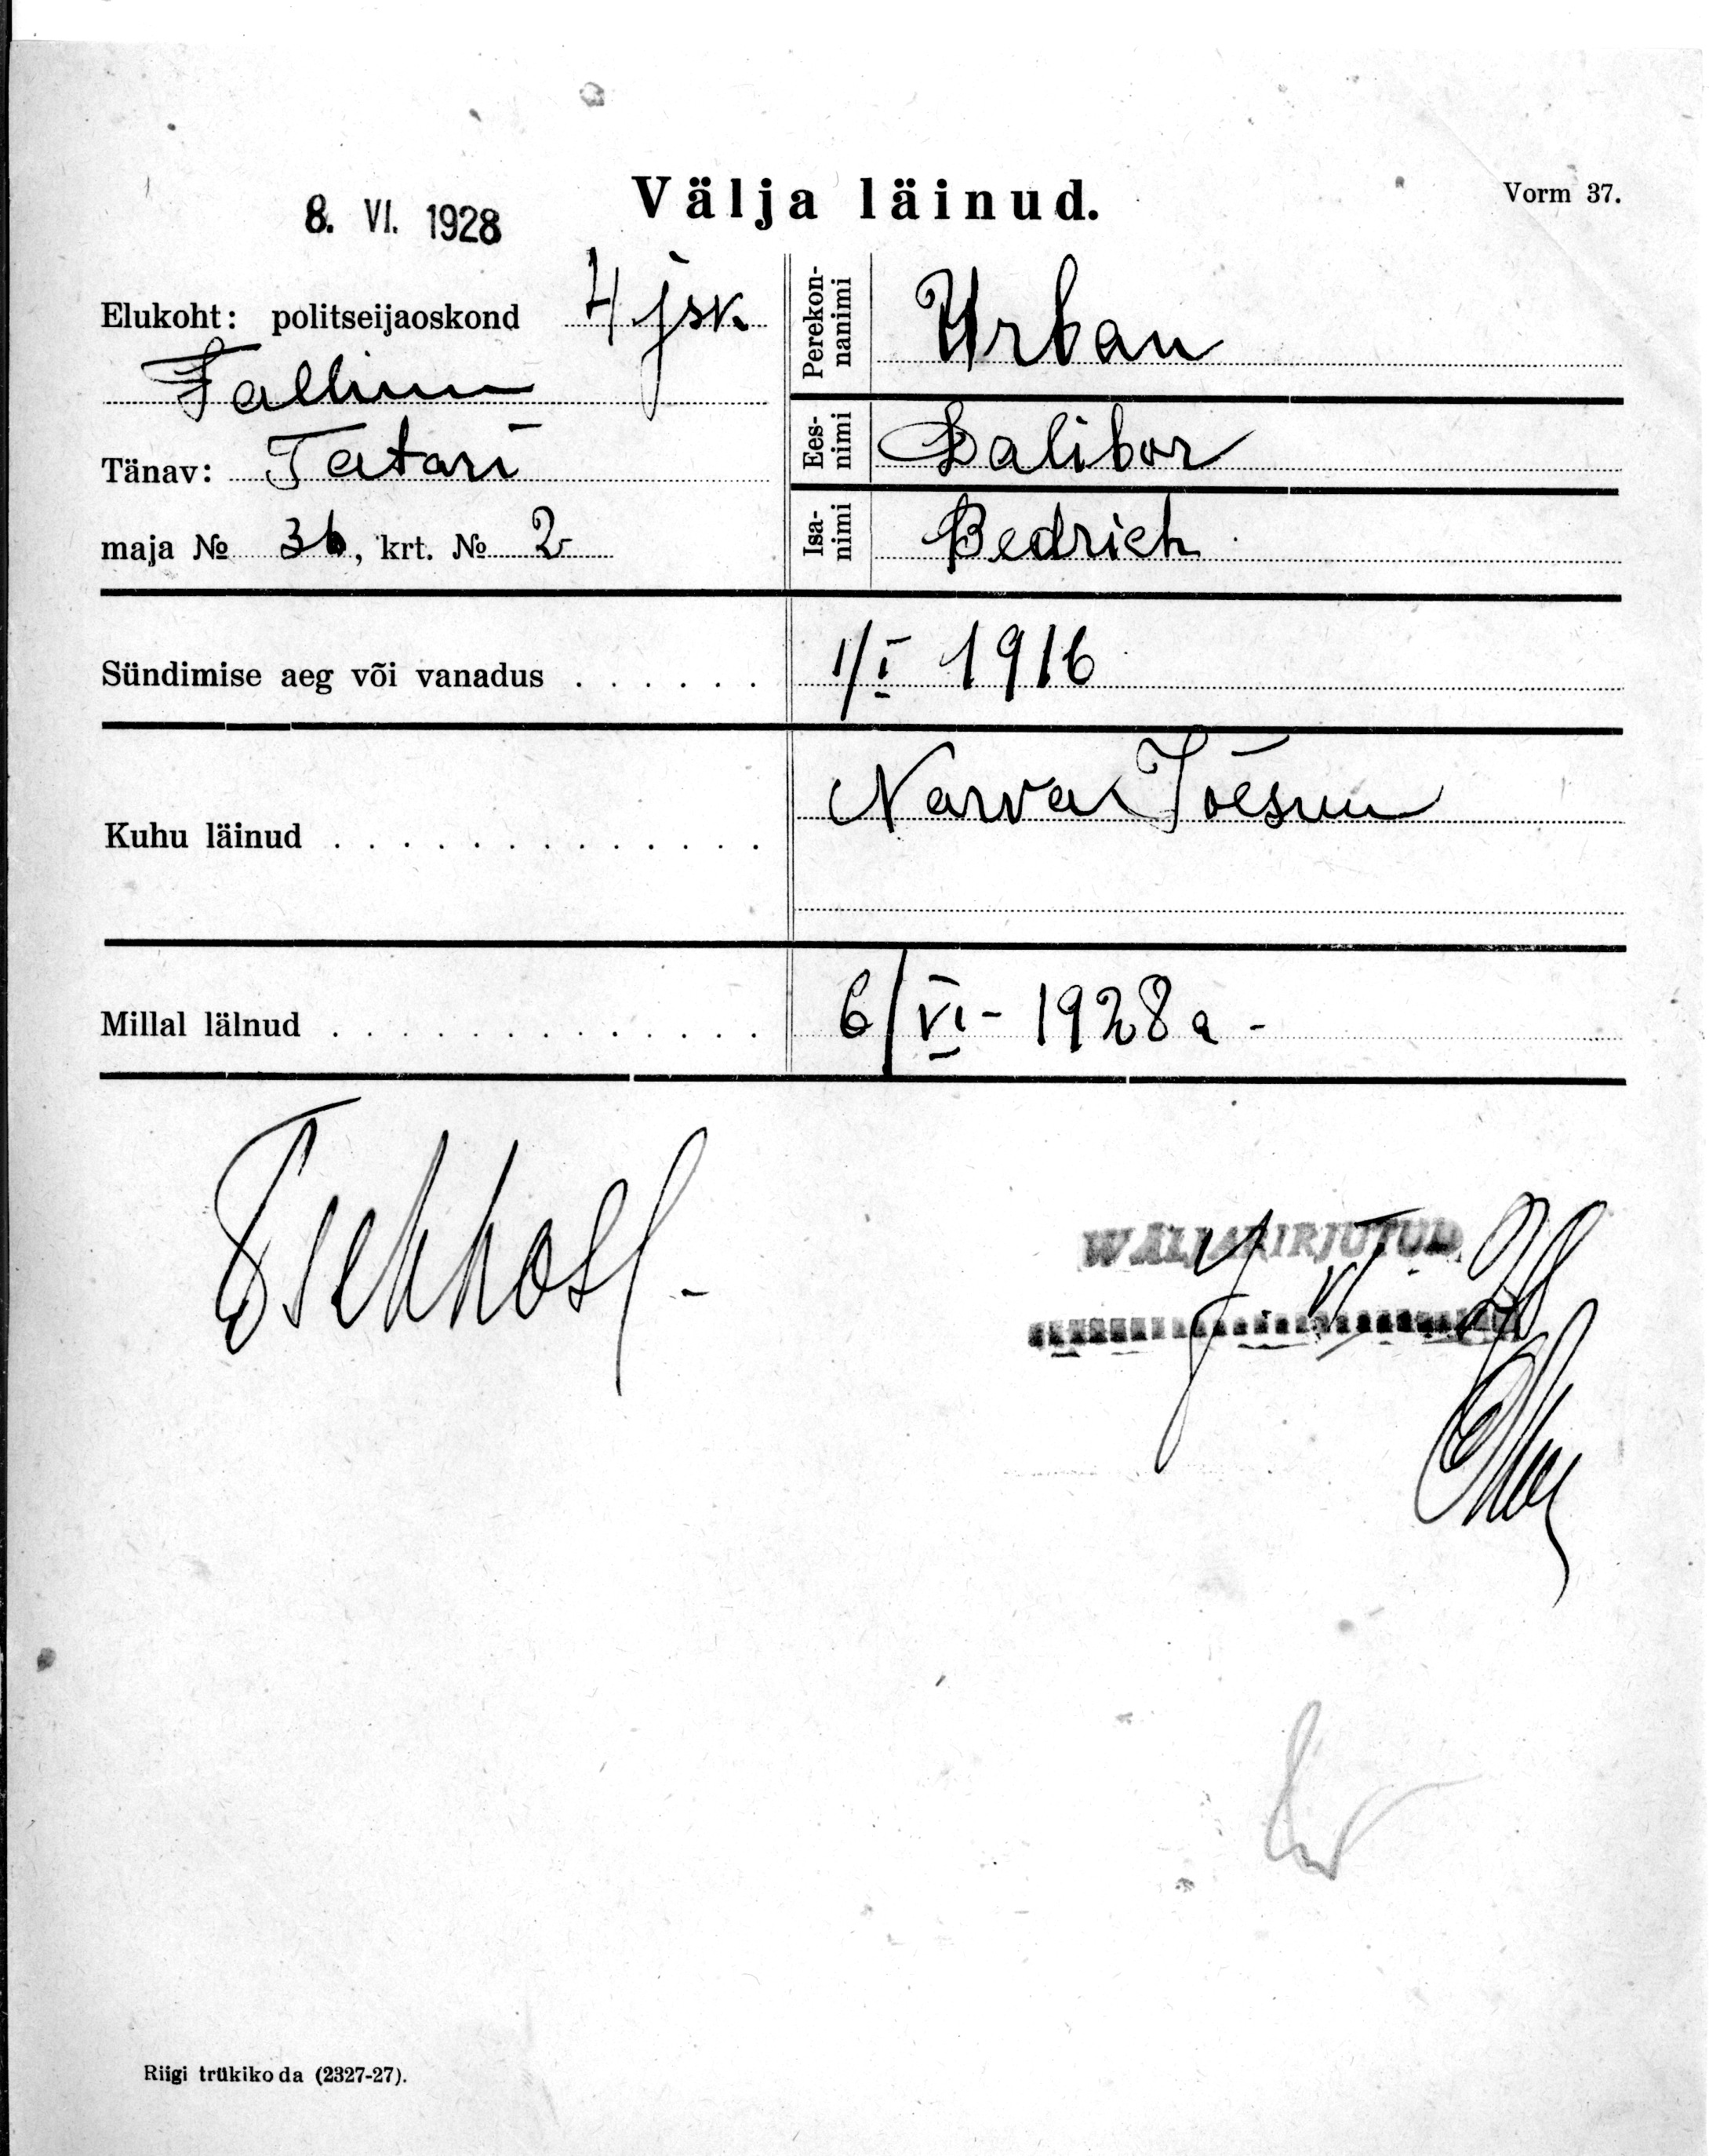 Välja läinud.
Vorm 37.
8. VI. 1928
Elukoht: politseijaoskond 4 jsk.
Tallinn
Tänav: Tatari
maja № 36, krt. № 2
Perekon-
nanimi
Urban
Ees-
nimi
Dalibor
Isa-
nimi
Bedrich
Sündimise aeg või vanadus . . . . . . 1/I 1916
Kuhu läinud . . . . . . . . . . . . . Narva Jõesuu
Millal lälnud . . . . . . . . . . . . . 6/VI - 1928 a -
WÄLJAKIRJUTUD
Riigi trükikoda (2327-27).